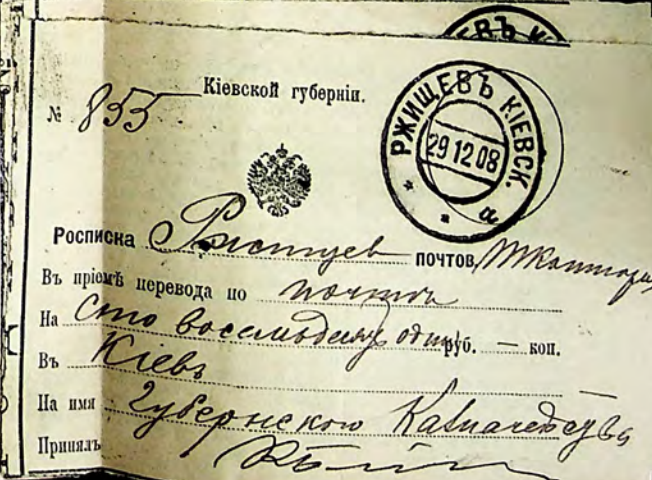 Кіевской губерніи.
№ 855
РЖИЩЕВЪ КІЕВСК.
29 12 08
а
Росписка почтов
Въ пріемѣ перевода по почтѣ
На Сто восемьдесят один руб. — коп.
Въ Кіевъ
На имя Губернского Казначейства
Принялъ